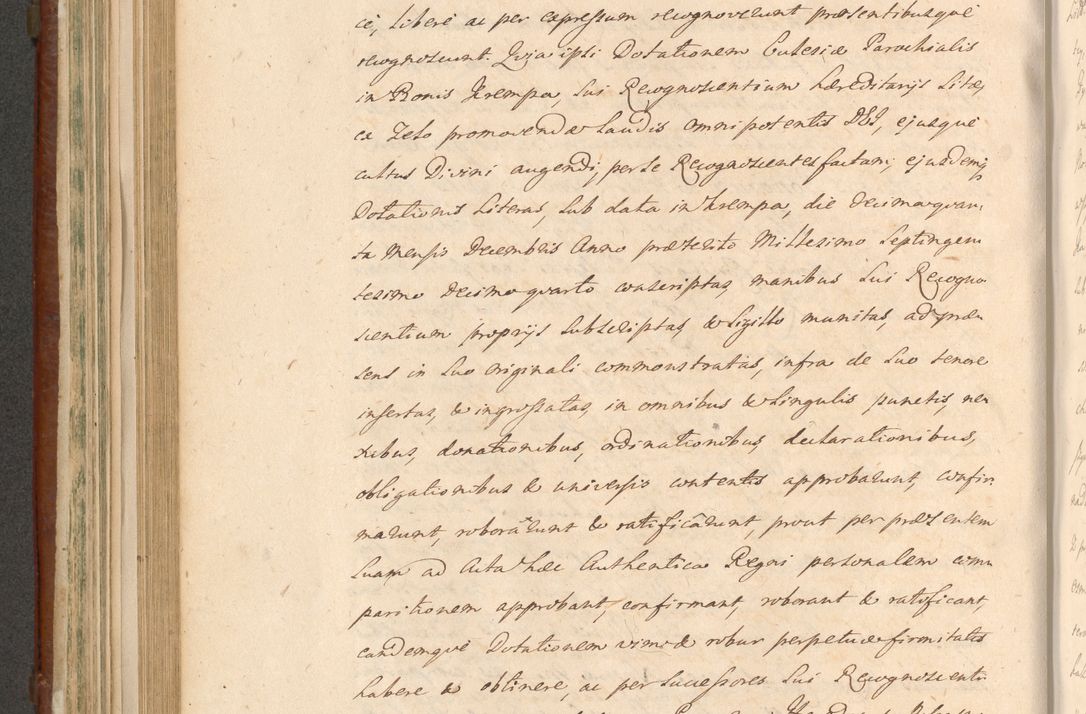 ce, Libere ac per expressum recognoverunt præsentibusque
recognoscunt. Quia ipsi Dotationem Ecclesiæ Parochialis
in Bonis Krempa, sui Recognoscentium hæreditarijs sitæ,
ex Zelo promovendæ Laudis omnipotentis DEI, ejusque
cultus Divini augendi, per se Recognoscentes factam, ejusdemq
Dotationis Literas, sub data in Krempa, die decima quar
ta Mensis Decembris Anno præterito Millesimo Septingen
tesimo decimo quarto conscriptas, manibus sui Recogno
scentium proprijs subscriptas, & Sigillo munitas, ad præ
sens in suo originali commonstratas, infra de suo tenore
insertas, & ingrossatas, in omnibus & singulis punctis, ne
xibus, donationibus, ordinationibus, declarationibus,
obligationibus & universis contentis approbarunt, confir
marunt, roborarunt & ratificarunt, prout per præsentem
suam ad Acta hæc Authentica Regni personalem com
paritionem approbant, confirmant, roborant & ratificant,
eandemque Dotationem vim & robur perpetuæ firmitatis
habere & obtinere, ac per successores sui Recognoscenti